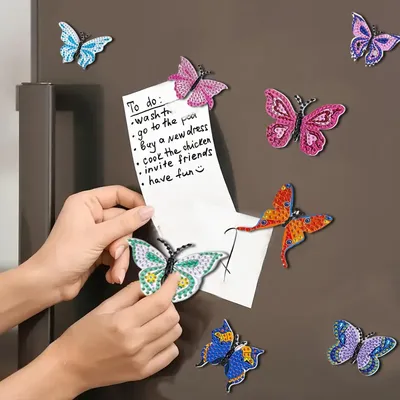 To do:
• wash th
• go to the pool
• Buy a new dress
• cook the chicken
• invite friends
• have fun